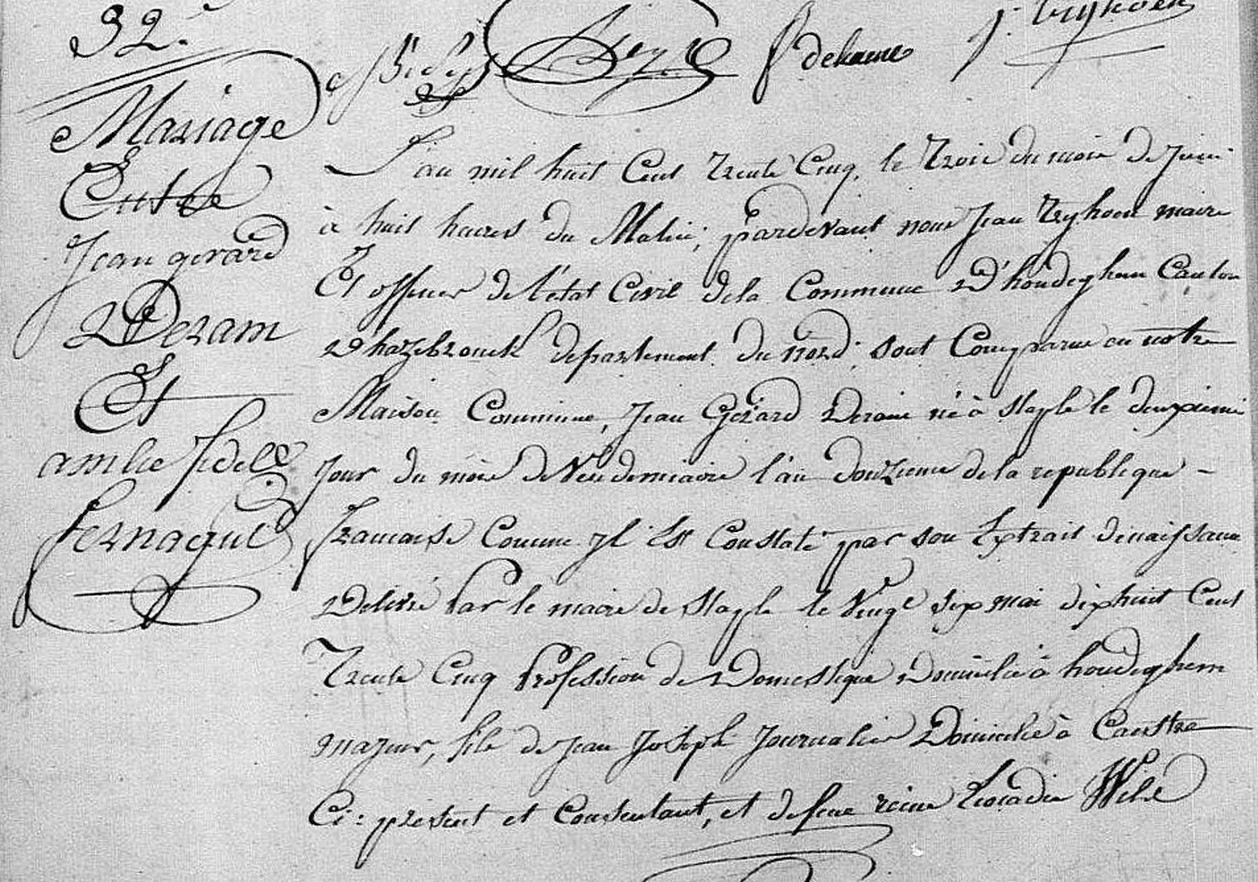 32.e
Mariage
Entre
Jean gerard
Deram
Et
amlie fidele
fernagut
delaere
j. tryhoen
L'an mil huit Cent trente Cinq, le trois du mois de Juin
à huit heures du Matin; pardevant nous Jean tryhoen maire
Et officier de l'état Civil dela Commune D'hondeghem Canton
D'hazebrouck departement du nord; sont Comparue en notre
Maison Commune, Jean Gerard Deram né à Staple le deuxieme
jour du mois de Vendemiaire l'an douzieme de la republique -
francaise Comme Jl Est Constaté par son Extrait denaissance
Delivré Par le maire de Staple le Vingt six mai dix huit Cent
Trente Cinq Profession de Domestique Domicilié à hondeghem
majeur, fils de Jean Joseph Journalier Domicilié à Caestre
Ci: présent et Consentant, et defeue reine Leocadie